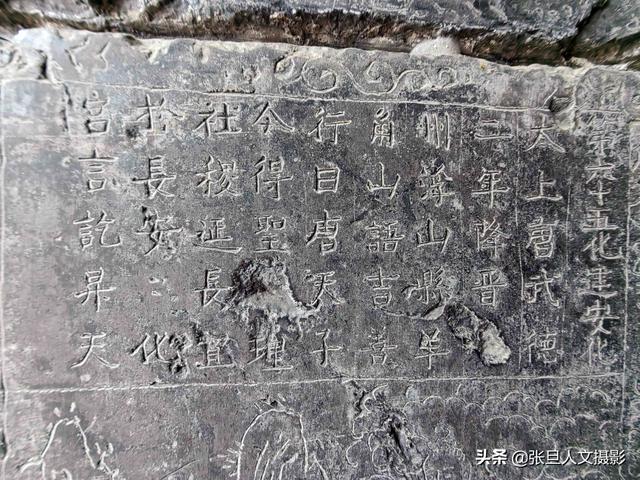 第六十五化建安化
太上唐武德
二年降晋
州浮山縣羊
角山語吉善
行曰唐天子
今得聖理
社稷延長宜
於長安〻化
宫言訖昇天
头条 @张旦人文摄影